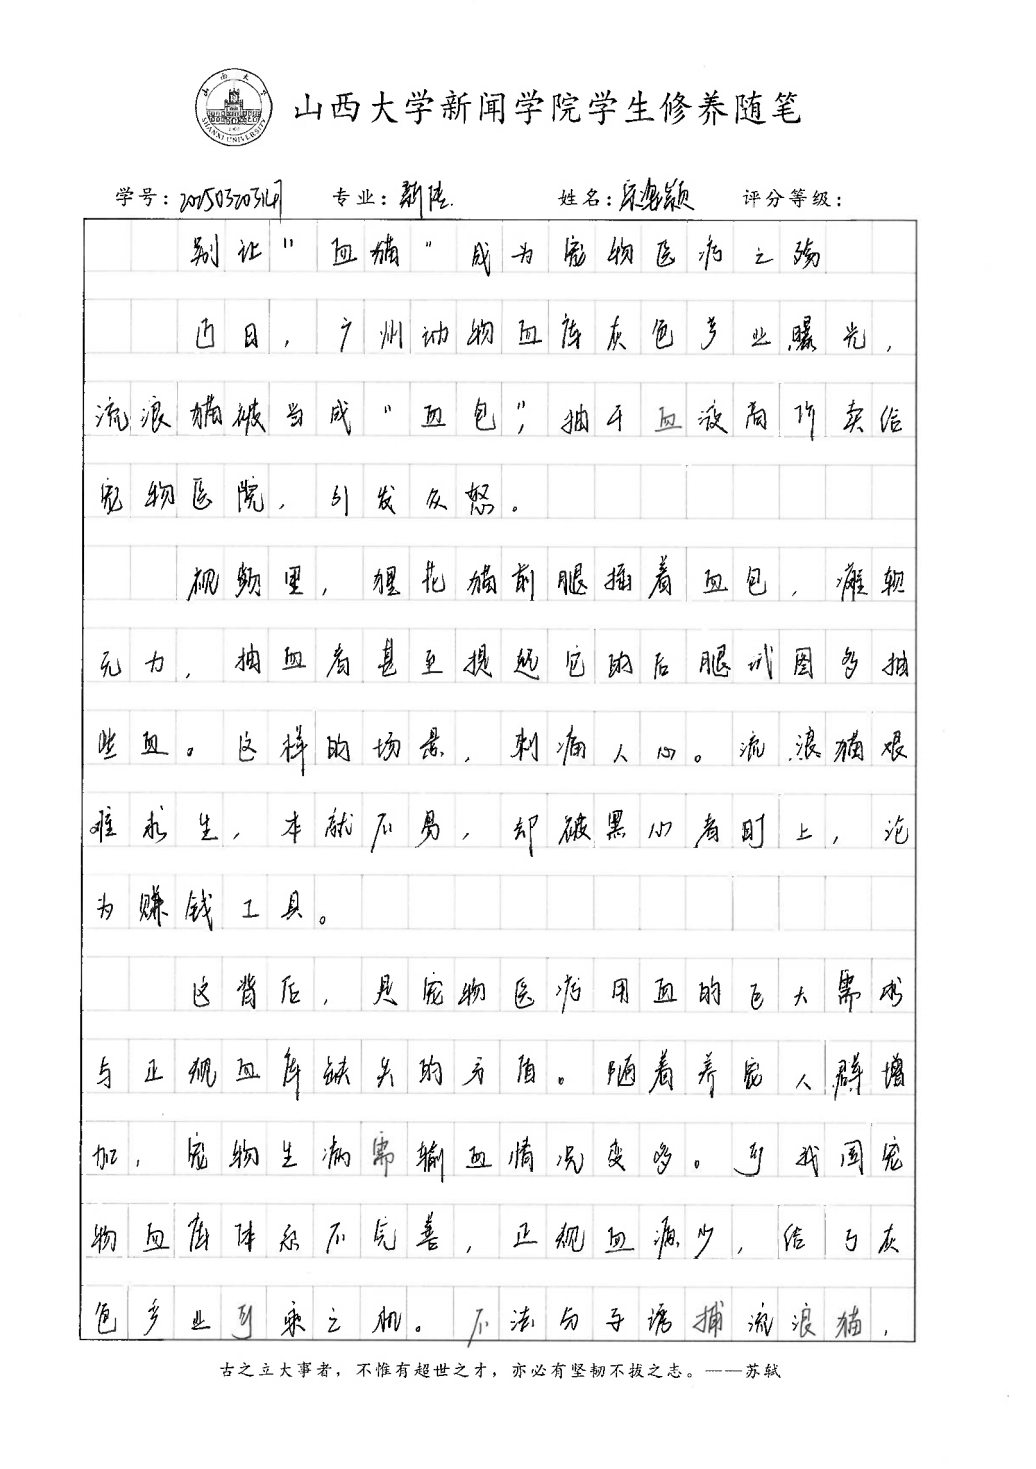 山西大学
SHANXI UNIVERSITY
山西大学新闻学院学生修养随笔
学号: 专业:新传. 姓名: 评分等级:
别让"血猫"成为宠物医疗之殇
近日,广州动物血库灰色产业曝光,
流浪猫被当成"血包",抽干血液高价卖给
宠物医院,引发众怒。
视频里,狸花猫前腿插着血包,瘫软
无力,抽血者甚至提起它的后腿试图多抽
些血。这样的场景,刺痛人心。流浪猫艰
难求生,本就不易,却被黑心者盯上,沦
为赚钱工具。
这背后,是宠物医疗用血的巨大需求
与正规血库缺失的矛盾。随着养宠人群增
加,宠物生病需输血情况变多。可我国宠
物血库体系不完善,正规血源少,给了灰
色产业可乘之机。不法分子诱捕流浪猫,
古之立大事者,不惟有超世之才,亦必有坚韧不拔之志。——苏轼